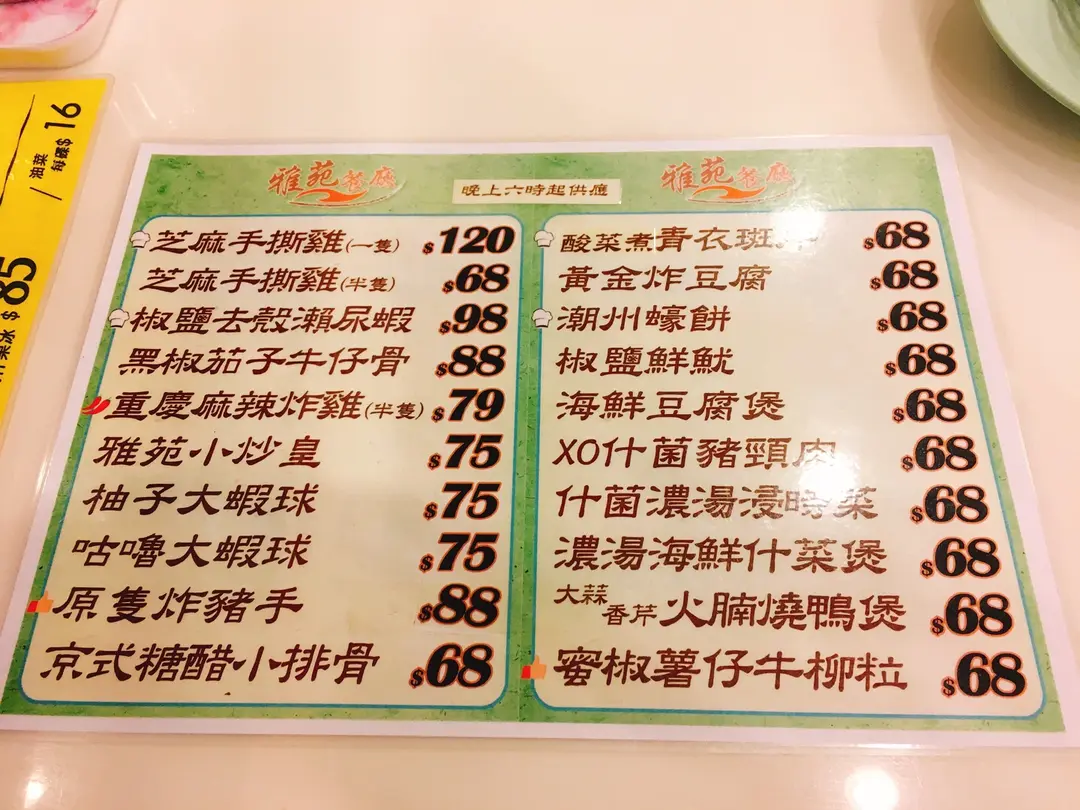 油菜
每碟$16
$85
雅苑餐廳
晚上六時起供應
雅苑餐廳
芝麻手撕雞(一隻) $120
芝麻手撕雞(半隻) $68
椒鹽去殼瀨尿蝦 $98
黑椒茄子牛仔骨 $88
重慶麻辣炸雞(半隻) $79
雅苑小炒皇 $75
柚子大蝦球 $75
咕嚕大蝦球 $75
原隻炸豬手 $88
京式糖醋小排骨 $68
酸菜煮青衣斑 $68
黃金炸豆腐 $68
潮州蠔餅 $68
椒鹽鮮魷 $68
海鮮豆腐煲 $68
XO什菌豬頸肉 $68
什菌濃湯浸時菜 $68
濃湯海鮮什菜煲 $68
大蒜香芹火腩燒鴨煲 $68
蜜椒薯仔牛柳粒 $68